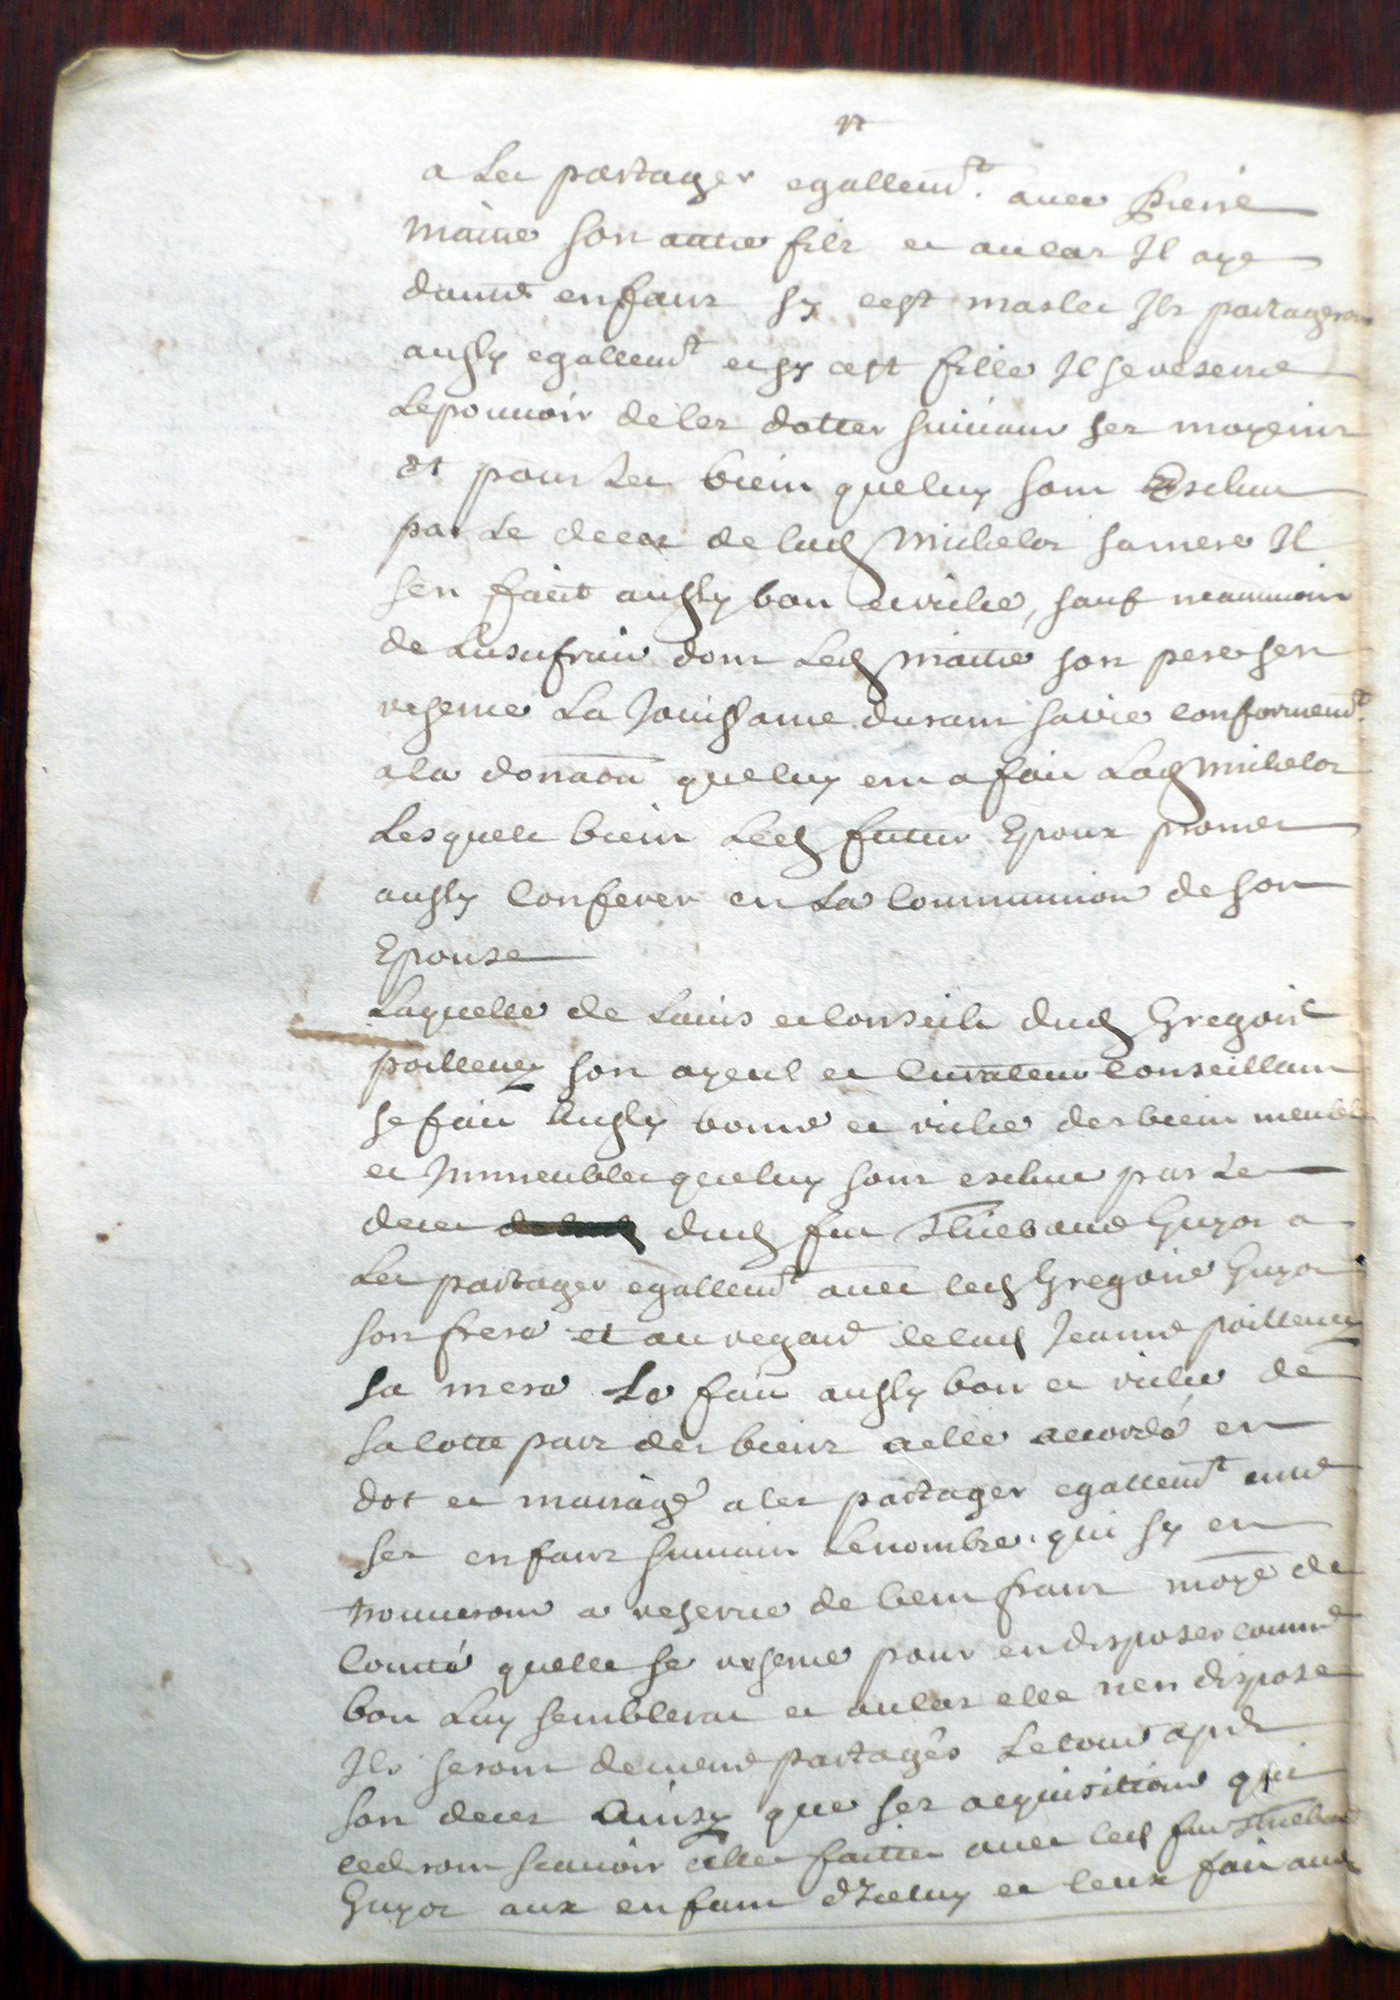 a les partager egallemt. avec Pierre
Maitre son autre fils et au cas Il aye
dautre enfans sy cest masles Ils partageron
aussy egallemt et sy cest fille Il se reserve
Le pouvoir de les dotter suivant ses moyeins
Et pour les biein que luy sont Escheu
par Le deces de lad Michelot sa mere Il
sen faict aussy bon et riche, sauf neaumoin
de Lusufruit dont Led Maitre son pere sen
reserve La Jouissance durant sa vie conformemt.
a la donaõn que luy en a fait Lad Michelot
Lesquels biein Led futur Epoux promet
aussy Conferer en La Communion de son
Epouse
Laquelle de Lavis et Conseils dud Gregoire
poilleney son ayeul et Curateur Conseillant
se fait Aussy bonne et riche des biein meuble
et Immeubles que luy sont escheu par Le
deces dud fu Thiebaud Guyot a
Les partager egallemt avec led Gregoire Guyot
son frere et au regard de lad Jeanne poilleney
sa mere La fait aussy bon et riche de
sa cotte part des biens a elle accordé en
dot et mariage a les partager egallemt avec
ses enfans suivant Le nombre qui sy en
trouveront a reserve de Cent frans moñe de
Comté quelle se reserve pour en disposer comme
bon Luy semblerat et au cas elle nen dispose
Ils seront de meme partagés Le tout apres
son deces Ainsy que ses acquisitions qui
sont scavoir celles faittes avec led fu Thiebaud
Guyot aux enfans dIceluy et ceux fait avec